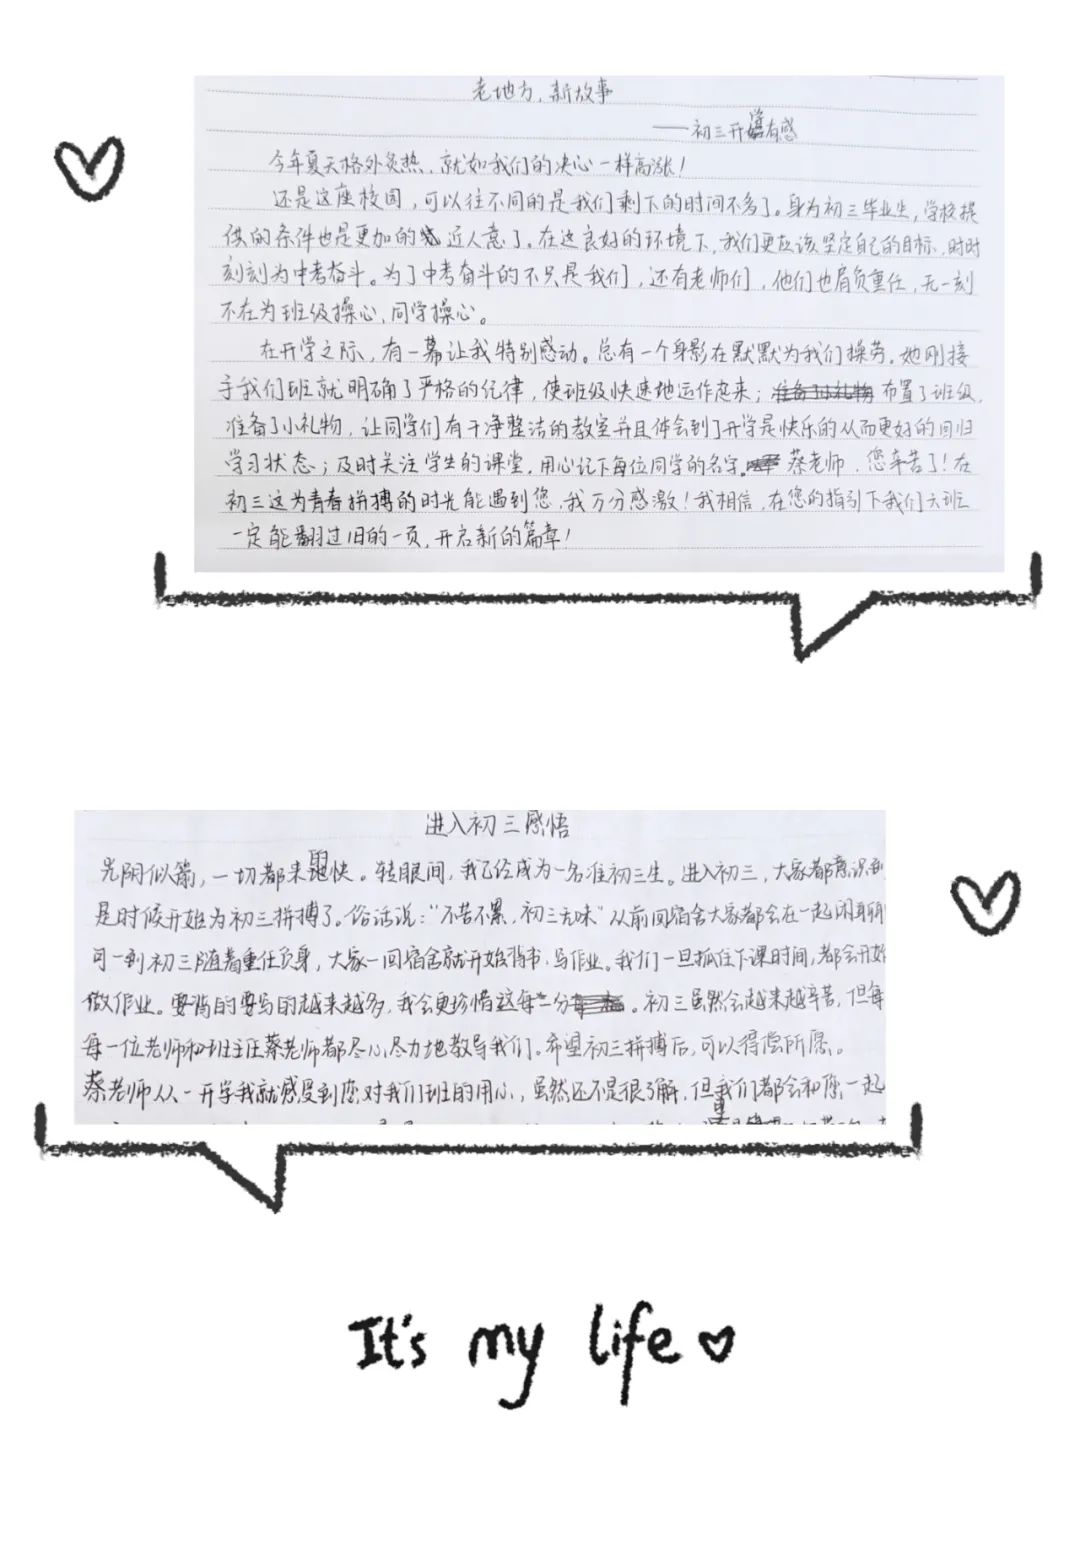 老地方，新故事
——初三开学有感
今年夏天格外炎热，就如我们的决心一样高涨！
还是这座校园，可以往不同的是我们剩下的时间不多了。身为初三毕业生，学校提
供的条件也是更加的近人意了。在这良好的环境下，我们更应该坚定自己的目标，时时
刻刻为中考奋斗。为了中考奋斗的不只是我们，还有老师们，他们也肩负重任，无一刻
不在为班级操心，同学操心。
在开学之际，有一幕让我特别感动。总有一个身影在默默为我们操劳。她刚接
手我们班就明确了严格的纪律，使班级快速地运作起来；布置了班级，
准备了小礼物，让同学们有干净整洁的教室并且体会到了开学是快乐的从而更好的回归
学习状态；及时关注学生的课堂，用心记下每位同学的名字。蔡老师，您辛苦了！在
初三这为青春拼搏的时光能遇到您，我万分感激！我相信，在您的指引下我们六班
一定能翻过旧的一页，开启新的篇章！
进入初三感悟
光阴似箭，一切都来得很快。转眼间，我已经成为一名准初三生。进入初三，大家都意识到
是时候开始为初三拼搏了。俗话说："不苦不累，初三无味"从前回宿舍大家都会在一起闲聊
可一到初三随着重任负身，大家一回宿舍就开始背书、写作业。我们一旦抓住下课时间，都会开始
做作业。要背的要写的越来越多，我会更珍惜这每一分。初三虽然会越来越辛苦，但每
每一位老师和班主任蔡老师都尽心尽力地教导我们。希望初三拼搏后，可以得偿所愿。
蔡老师从一开学我就感受到您对我们班的用心，虽然还不是很了解，但我们都会和您一起
It's my life